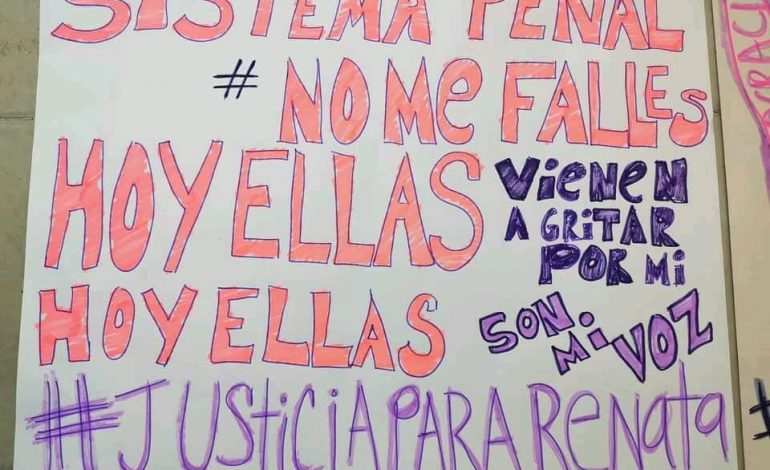 SISTEMA PENAL
# NO ME FALLES
HOY ELLAS
VIENEN
A GRITAR
POR MI
HOY ELLAS
SON.
MI VOZ
#JUSTICIAPARARENATA